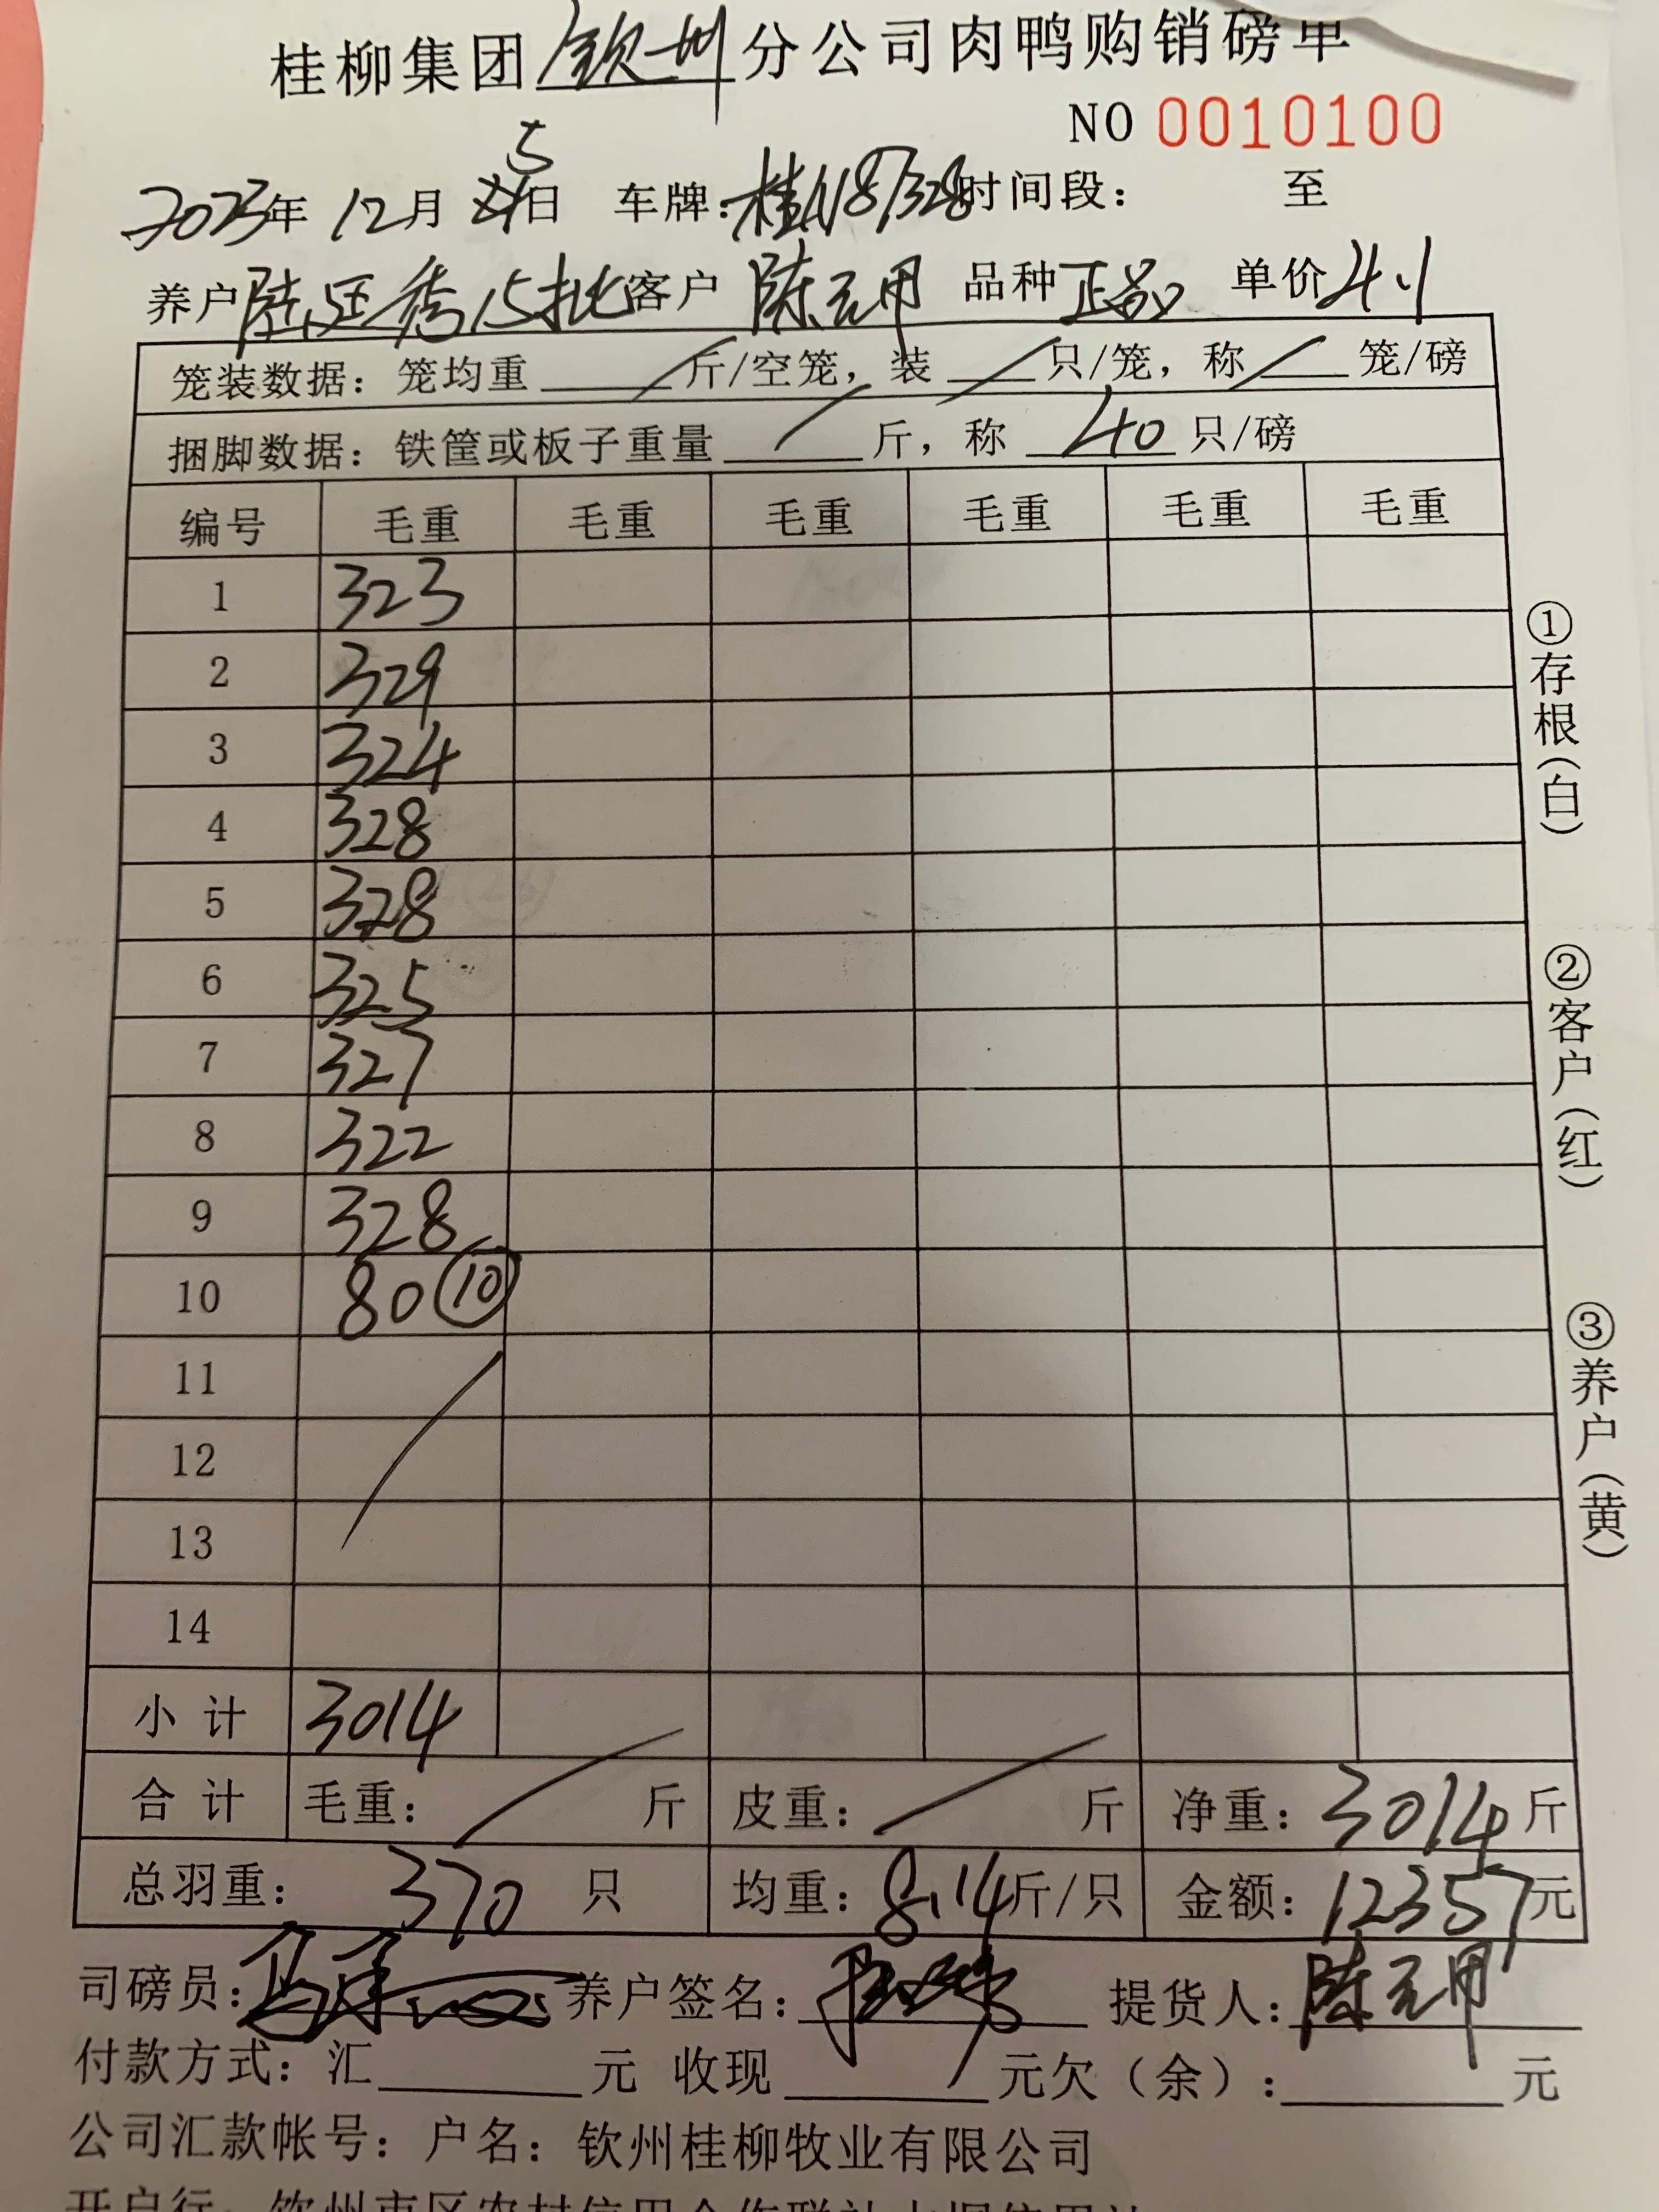 桂柳集团钦州分公司肉鸭购销磅单
NO 0010100
2023年 12月 5日 车牌:桂N87328时间段: 至
养户 陆廷秀15批 客户 陈元用 品种 正品 单价 4.1
笼装数据: 笼均重 / 斤/空笼, 装 / 只/笼, 称 / 笼/磅
捆脚数据: 铁筐或板子重量 / 斤, 称 40 只/磅
编号 毛重 毛重 毛重 毛重 毛重 毛重
1 323
2 329
3 324
4 328
5 328
6 325
7 327
8 322
9 328
10 80 ⑩
11
12
13
14
小计 3014
合计 毛重: / 斤 皮重: / 斤 净重: 3014 斤
总羽重: 370 只 均重: 8.14 斤/只 金额: 12357 元
司磅员: 养户签名: 提货人: 陈元用
付款方式: 汇 元 收现 元欠(余): 元
公司汇款帐号: 户名: 钦州桂柳牧业有限公司
①存根(白)
②客户(红)
③养户(黄)